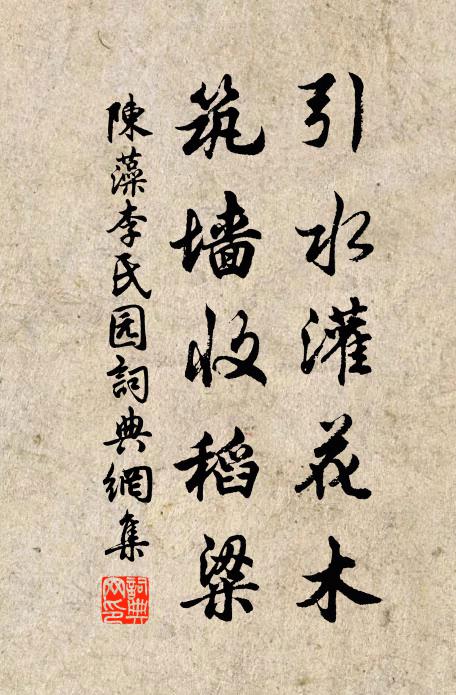 引水灌花木
筑墙收稻粱
陳藻李氏园詞典網集